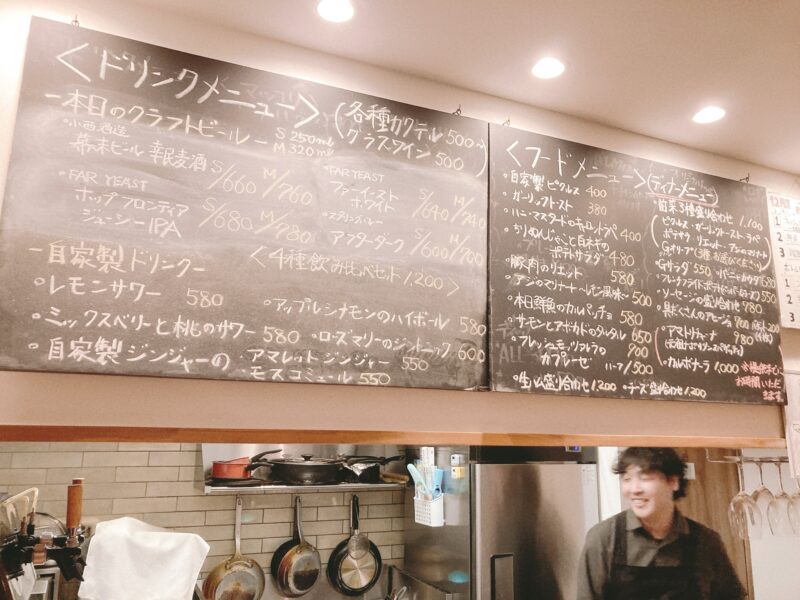 <ドリンクメニュー>
(各種カクテル 500〜)
グラスワイン 500
ー本日のクラフトビールー S 250ml
M 320ml
・小西酒造
幕末ビール 幸民麦酒 S/660 M/760
・FAR YEAST
ホップフロンティア
ジューシーIPA S/680 M/780
・FAR YEAST
ファーイースト
ホワイト S/640 M/740
アフターダーク S/600 M/700
<4種飲み比べセット 1,200>
ー自家製ドリンクー
・レモンサワー 580
・アップルシナモンのハイボール 580
・ミックスベリーと桃のサワー 580
・ローズマリーのジントニック 600
・自家製ジンジャーの アマレットジンジャー 550
モスコミュール 550
<フードメニュー>
・自家製ピクルス 400
・ガーリックトースト 380
・ハニーマスタードのキャロットラペ 400
・ちりめんじゃこと
ポテトサラダ 480
・豚肉のリエット 580
・アジのマリナート 〜レモン風味〜 500
・本日鮮魚のカルパッチョ 580
・サーモンとアボカドのタルタル 650
・フレッシュモッツァレラの 900
カプレーゼ ハーフ/500
・生ハム盛り合わせ 1,200
・チーズ盛り合わせ 1,200
(ディナメニュー)
・前菜3種盛り合わせ 1,100
ピクルス・ガーリックトースト・ラペ
ポテサラ・リエット・アジのマリナート
・Gサラダ 550
・ソーセージの盛り合わせ 980
・アマトリチャーナ 980
・カルボナーラ 1,000
お時間いただ
きます。
12月